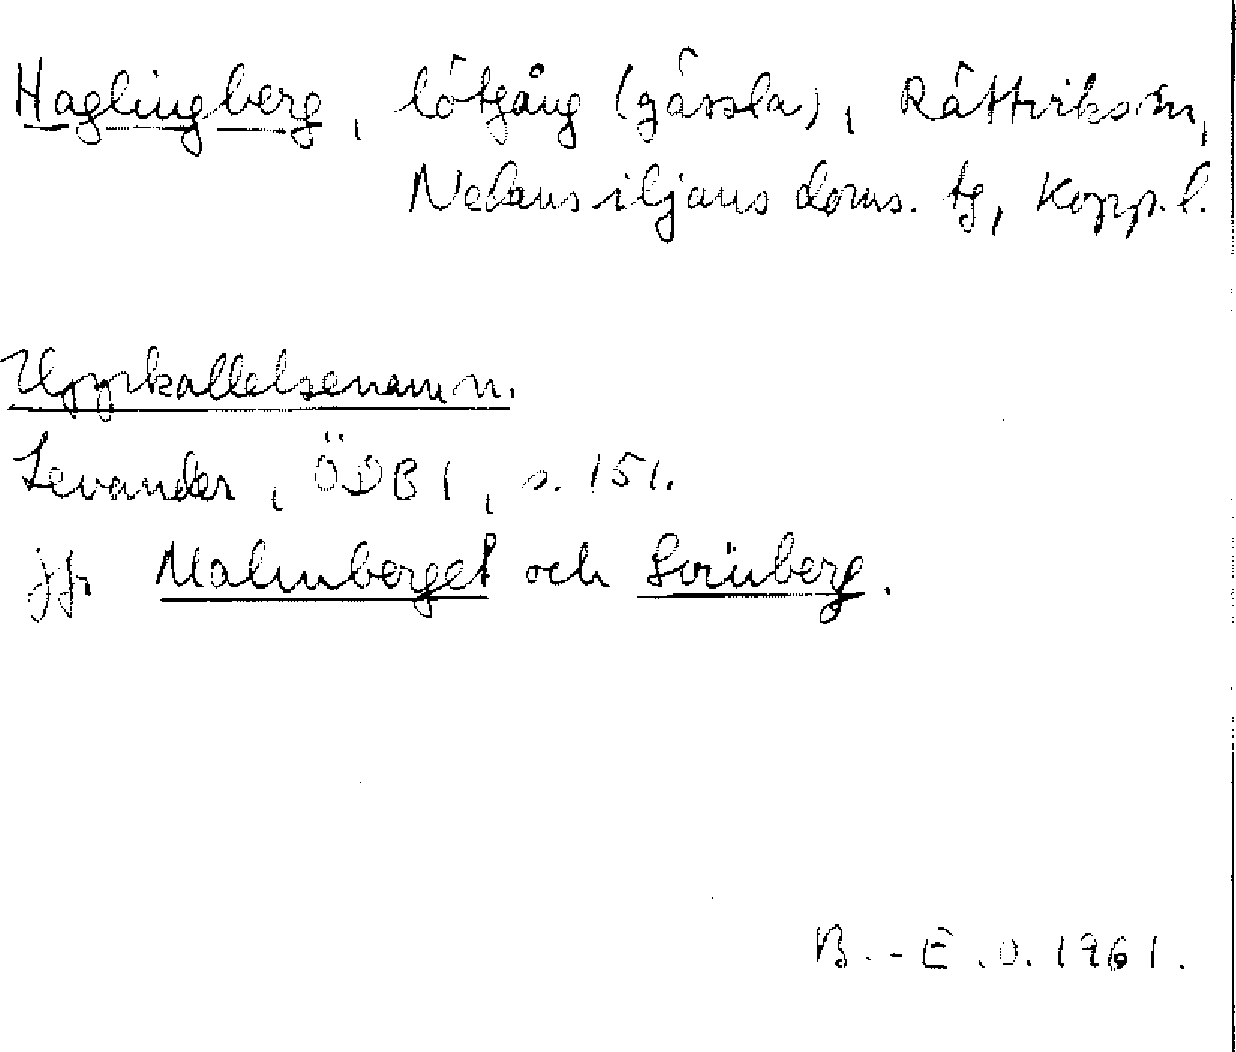 Haglingberg, lötgång (gässla), Rättviks sn,
Nedansiljans doms. tg, Kopp. l.
Uppkallelsenamn.
Levander, ÖDB I, s. 151.
jfr Malmberget och
B.-E. O. 1961.